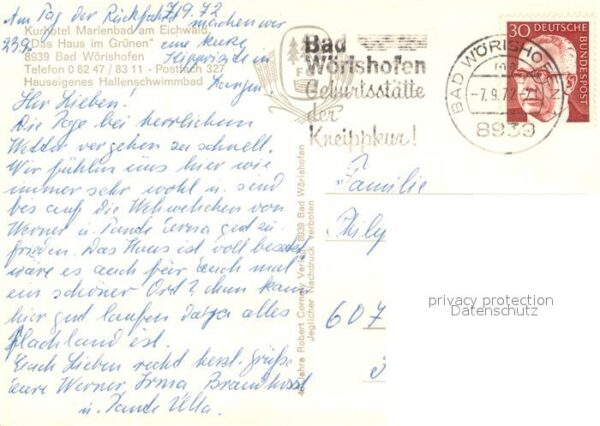 Am Tag der Rückfahrt 7.9.72
machen wir
eine kurze
in
239
Kurhotel Marienbad am Eichwald,
"Das Haus im Grünen"
8939 Bad Wörishofen
Telefon 0 62 47 / 83 11 - Postfach 327
Hauseigenes Hallenschwimmbad
Ihr Lieben!
Die Tage bei herrlichem
Wetter vergehen zu schnell.
Wir fühlen uns hier wie
immer sehr wohl u. sind
bis auf die Wehwehchen von
Werner u. Tante zu-
frieden. Das Haus ist voll besetzt
wäre es auch für Euch mal
ein schöner Ort? dann kann
hier gut laufen da ja alles
Flachland ist.
Euch Lieben recht herzl. Grüße
Eure Werner Irma
u. Tante Ulla.
40 Jahre Robert Corneky Verlag 8939 Bad Wörishofen
Jeglicher Nachdruck verboten
Bad
Wörishofen
Geburtsstätte
der
Kneippkur!
BAD WÖRISHOFEN 1
-7.9.72
8939
30
DEUTSCHE
BUNDESPOST
Familie
607
privacy protection
Datenschutz